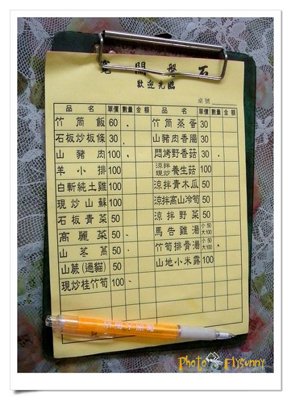 歡迎光臨
桌號
品名 單價 數量 金額 品名 單價 數量 金額
竹筒飯 60 竹筒菜香 30
石板炒板條 30 山豬肉香腸 30
山豬肉 100 悶烤野香菇 30
羊小排 100 涼拌現炒養生菇 100
白斬純土雞 100 涼拌青木瓜 50
現炒山蘇 100 涼拌高山冷筍 50
石板青菜 50 涼拌野菜 50
高麗菜 50 馬告雞湯 小50 大100
山苳萵 50 竹筍排骨湯 小50 大100
山蕨(過貓) 50 山地小米露 100
現炒桂竹筍 100
Photo Elysunny